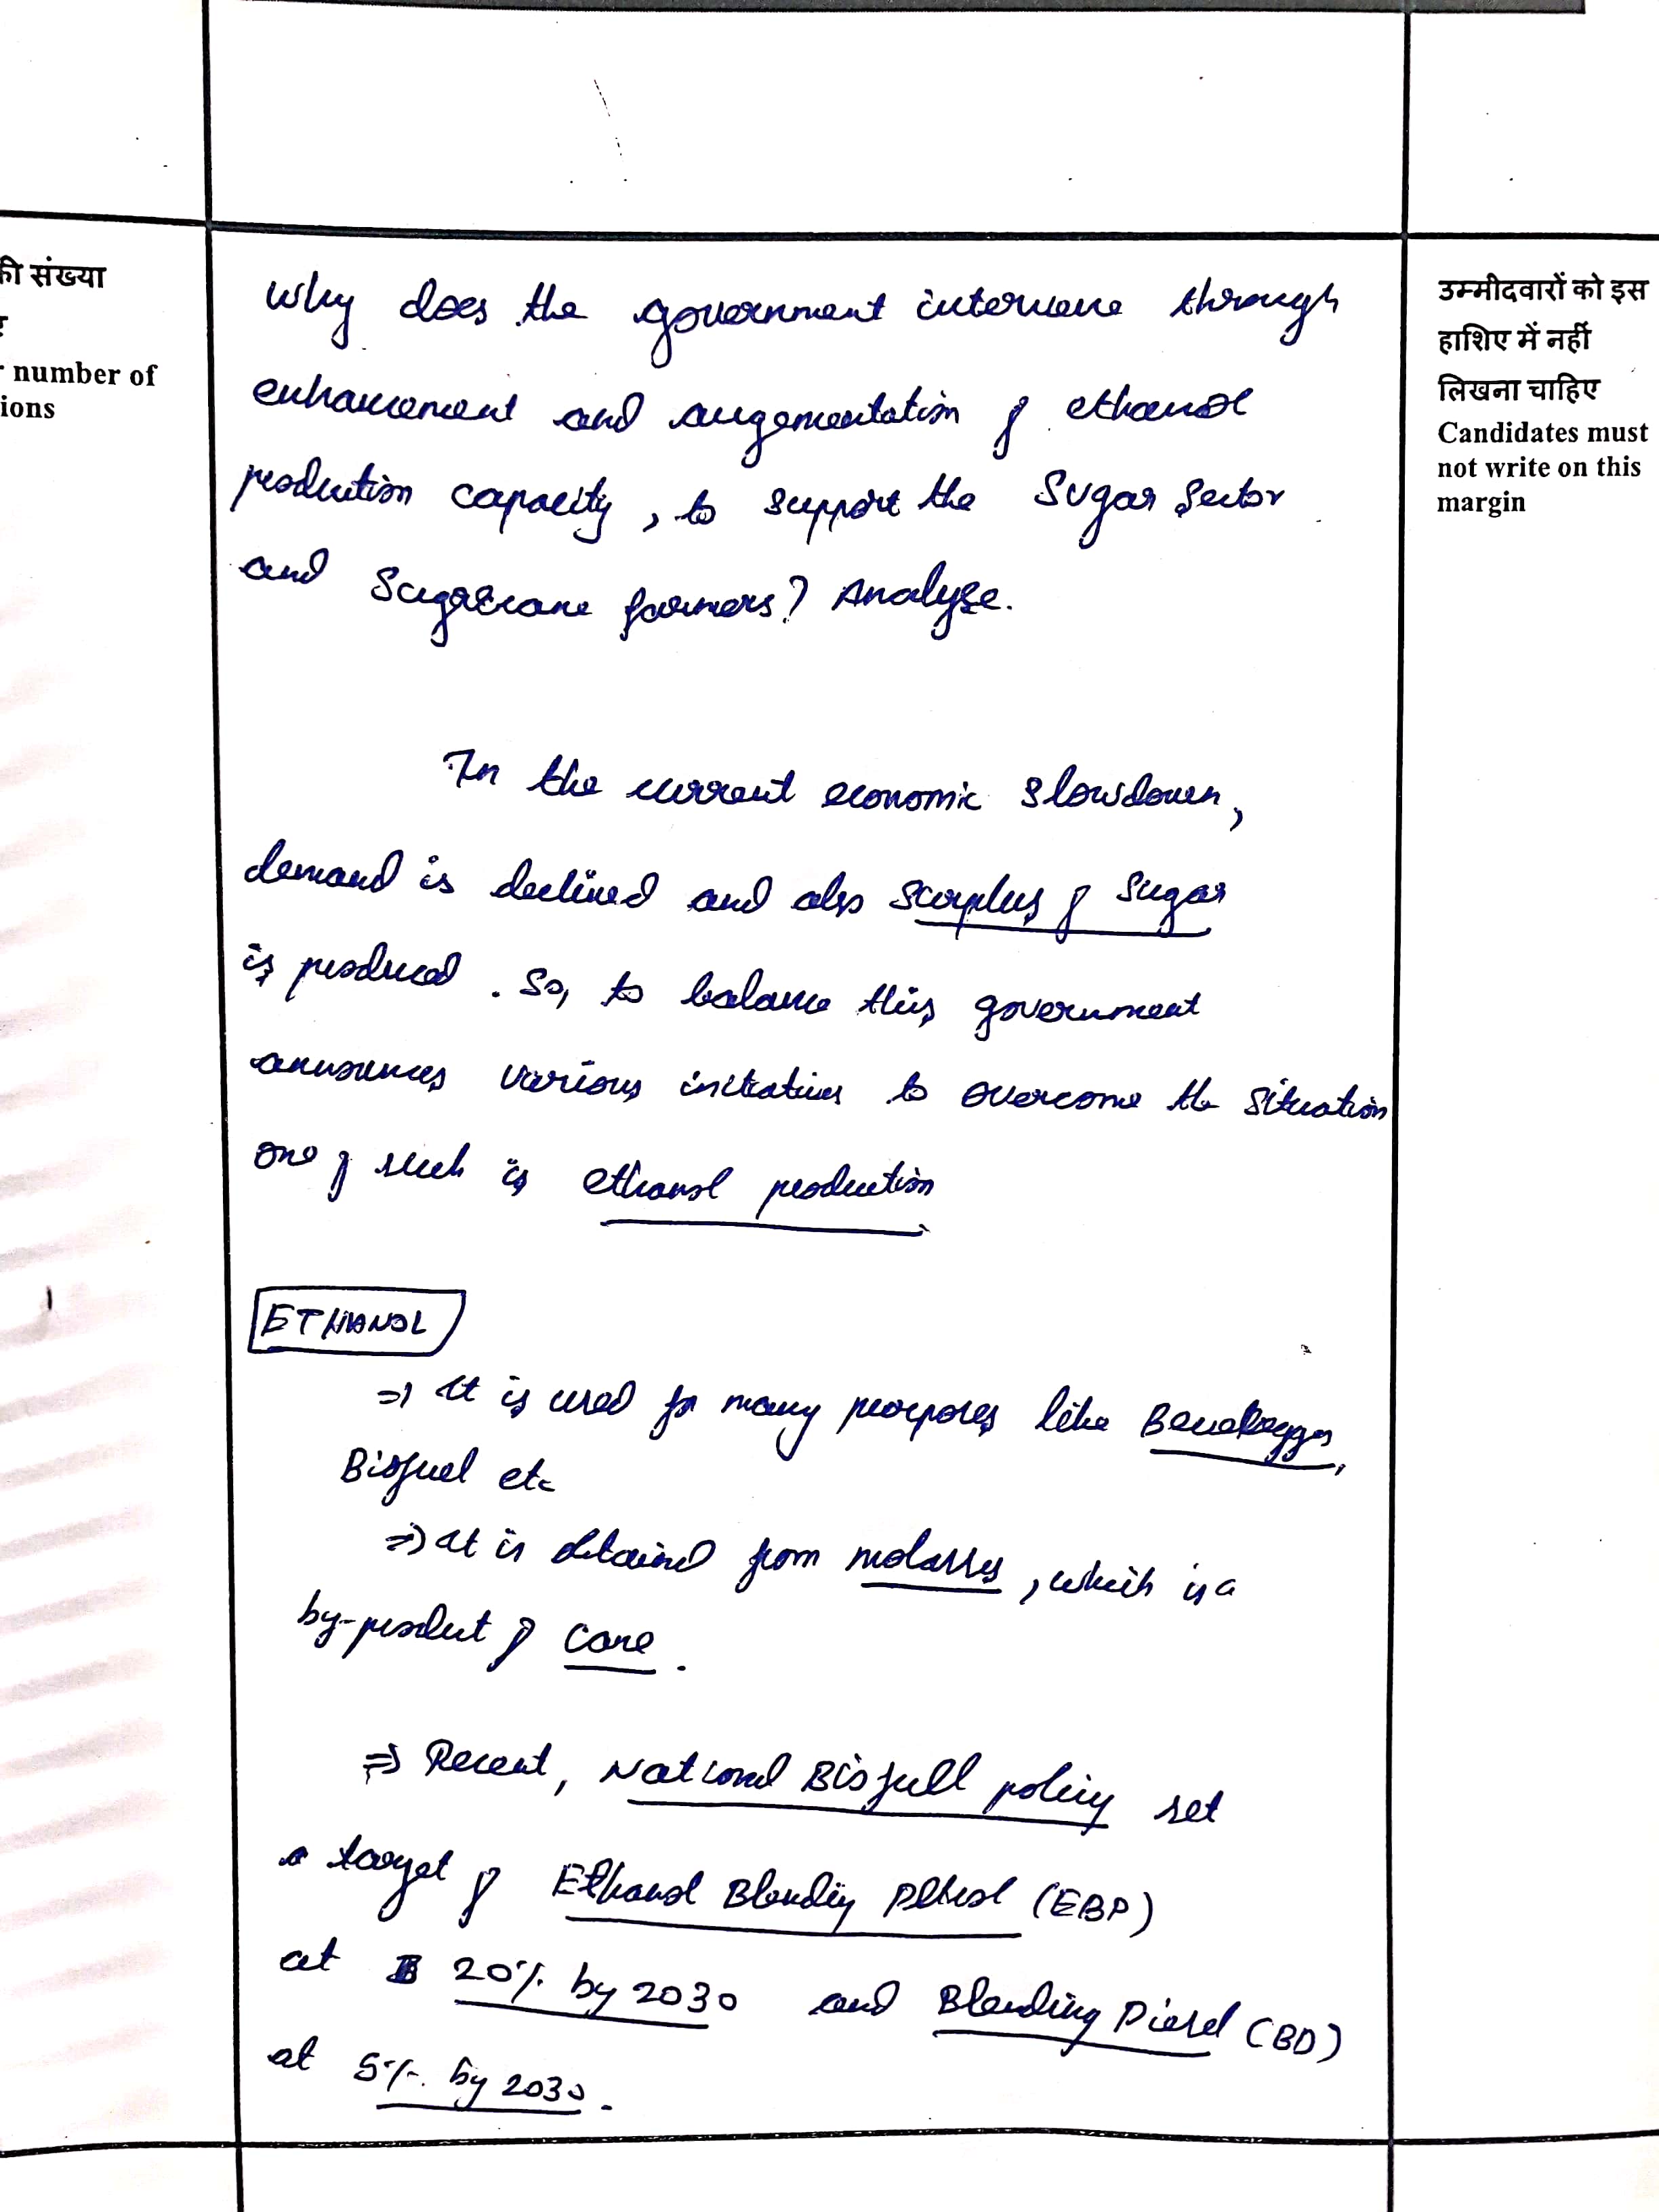 की संख्या
number of
ions
उम्मीदवारों को इस
हाशिए में नहीं
लिखना चाहिए
Candidates must
not write on this
margin
Why does the government intervene through
enhancement and augementation of ethanol
production capacity, to support the Sugar Sector
and Sugarcane farmers? Analyse.
In the current economic slowdown,
demand is declined and also surplus of sugar
is produced. So, to balance this government
announces various initiatives to overcome the situation
one of such is ethanol production
ETHANOL
⇒ It is used for many purposes like
Biofuel etc
⇒ It is obtained from molasses, which is a
by-product of cane.
⇒ Recent, National Biofuel policy set
a target of Ethanol Blending petrol (EBP)
at 20% by 2030 and Blending Diesel (BD)
at 5% by 2030.